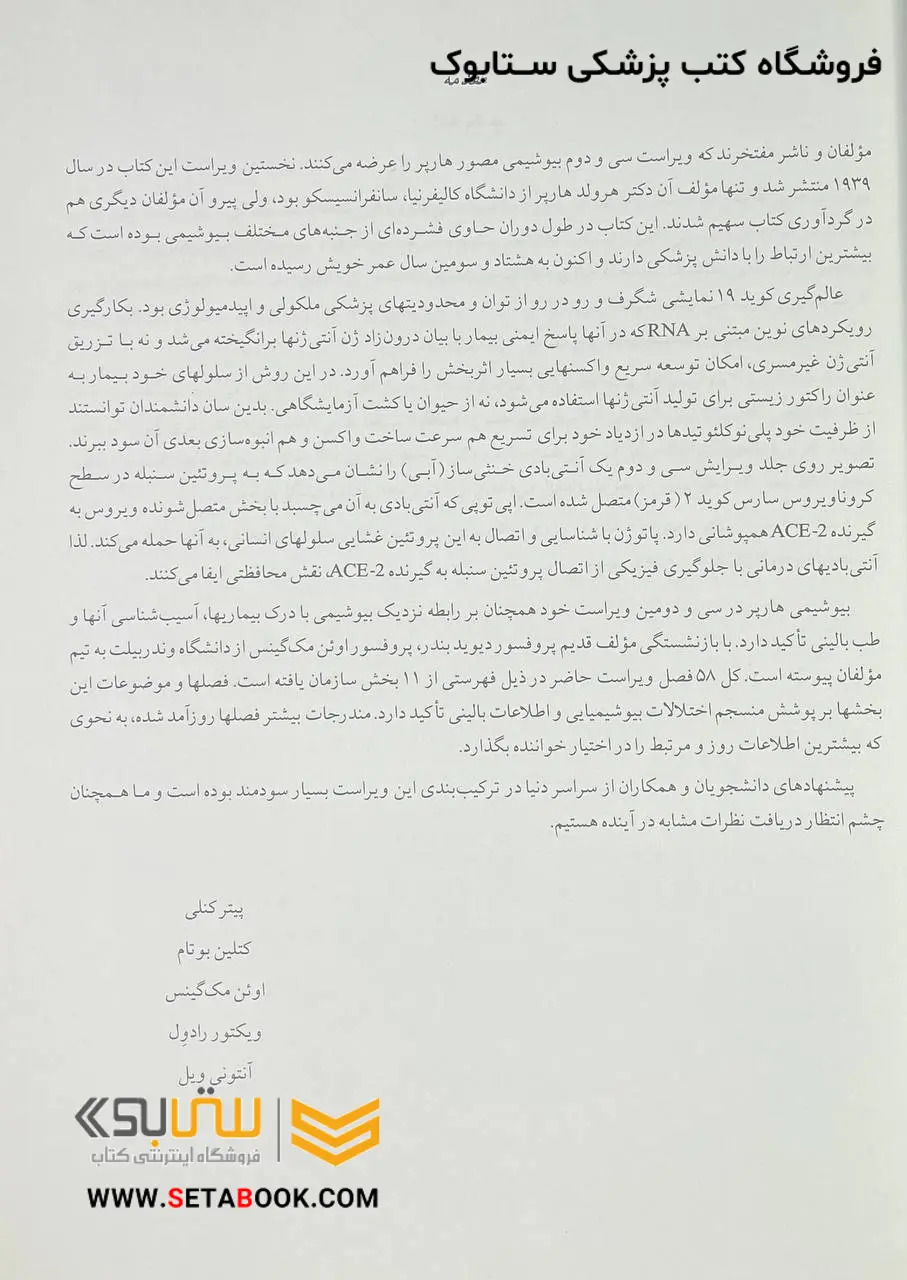 فروشگاه کتب پزشکی ستابوک
مقدمه
مؤلفان و ناشر مفتخرند که ویراست سی و دوم بیوشیمی مصور هارپر را عرضه می‌کنند. نخستین ویراست این کتاب در سال
۱۹۳۹ منتشر شد و تنها مؤلف آن دکتر هرولد هارپر از دانشگاه کالیفرنیا، سانفرانسیسکو بود، ولی پیرو آن مؤلفان دیگری هم
در گردآوری کتاب سهیم شدند. این کتاب در طول دوران حاوی فشرده‌ای از جنبه‌های مختلف بیوشیمی بوده است که
بیشترین ارتباط را با دانش پزشکی دارند و اکنون به هشتاد و سومین سال عمر خویش رسیده است.
عالم‌گیری کوید ۱۹ نمایشی شگرف و رو در رو از توان و محدودیتهای پزشکی ملکولی و اپیدمیولوژی بود. بکارگیری
رویکردهای نوین مبتنی بر RNA که در آنها پاسخ ایمنی بیمار با بیان درون‌زاد ژن آنتی‌ژنها برانگیخته می‌شد و نه با تزریق
آنتی‌ژن غیرمسری، امکان توسعه سریع واکسنهایی بسیار اثربخش را فراهم آورد. در این روش از سلولهای خود بیمار به
عنوان راکتور زیستی برای تولید آنتی‌ژنها استفاده می‌شود، نه از حیوان یا کشت آزمایشگاهی. بدین سان دانشمندان توانستند
از ظرفیت خود پلی‌نوکلئوتیدها در ازدیاد خود برای تسریع هم سرعت ساخت واکسن و هم انبوه‌سازی بعدی آن سود ببرند.
تصویر روی جلد ویرایش سی و دوم یک آنتی‌بادی خنثی‌ساز (آبی) را نشان می‌دهد که به پروتئین سنبله در سطح
کروناویروس سارس کوید ۲ (قرمز) متصل شده است. اپی‌توپی که آنتی‌بادی به آن می‌چسبد با بخش متصل‌شونده ویروس به
گیرنده ACE-2 همپوشانی دارد. پاتوژن با شناسایی و اتصال به این پروتئین غشایی سلولهای انسانی، به آنها حمله می‌کند. لذا
آنتی‌بادیهای درمانی با جلوگیری فیزیکی از اتصال پروتئین سنبله به گیرنده ACE-2، نقش محافظتی ایفا می‌کنند.
بیوشیمی هارپر در سی و دومین ویراست خود همچنان بر رابطه نزدیک بیوشیمی با درک بیماریها، آسیب‌شناسی آنها و
طب بالینی تأکید دارد. با بازنشستگی مؤلف قدیم پروفسور دیوید بندر، پروفسور اوئن مک‌گینس از دانشگاه وندربیلت به تیم
مؤلفان پیوسته است. کل ۵۸ فصل ویراست حاضر در ذیل فهرستی از ۱۱ بخش سازمان یافته است. فصلها و موضوعات این
بخشها بر پوشش منسجم اختلالات بیوشیمیایی و اطلاعات بالینی تأکید دارد. مندرجات بیشتر فصلها روزآمد شده، به نحوی
که بیشترین اطلاعات روز و مرتبط را در اختیار خواننده بگذارد.
پیشنهادهای دانشجویان و همکاران از سراسر دنیا در ترکیب‌بندی این ویراست بسیار سودمند بوده است و ما همچنان
چشم انتظار دریافت نظرات مشابه در آینده هستیم.
پیتر کنلی
کتلین بوتام
اوئن مک‌گینس
ویکتور رادوِل
آنتونی ویل
ستابوک
فروشگاه اینترنتی کتاب
WWW.SETABOOK.COM